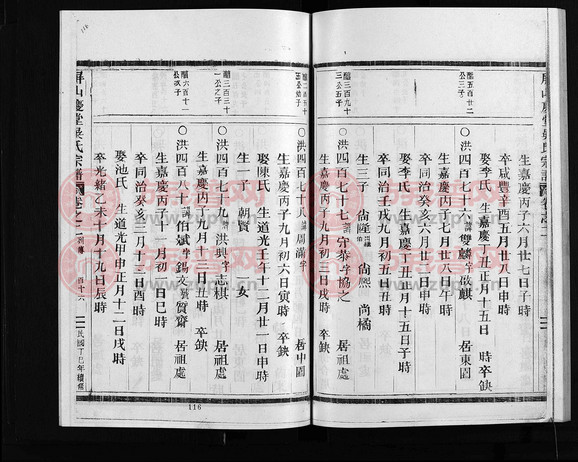 屏山慶堂吳氏宗譜
生嘉慶丙子六月廿七日子時
卒咸豐辛酉五月廿八日申時
娶李氏 生嘉慶丁丑正月十五日 時卒缺
醞五百廿二公三子
〇洪四百七十六 諱雙麟字啟麒 居東園
生嘉慶丙子七月廿八日午時
卒同治癸亥六月廿四日申時
娶李氏 生嘉慶 丑正月十五日子時
卒同治壬戌九月初五日丑時
生三子 尚隆 尚熙 尚橘
醞三百九十三公五子
〇洪四百七十七 諱守恭字協之 居祖處
生嘉慶丙子九月初三日戌時 卒缺
〇洪四百七十八 周滿字 居中園
生嘉慶丙子九月初六日寅時 卒缺
娶陳氏 生道光壬午十二月廿一日申時
生一子 朝賢 一女
醞三百三十一公之子
〇洪四百七十九 諱洪興字志棋 居祖處
生嘉慶丙子九月十二日丑時 卒缺
醞六百十一公次子
〇洪四百八十 諱伯斌字錫文號質齋 居祖處
生嘉慶丙子十一月初一日巳時
卒同治癸亥三月十三日酉時
娶池氏 生道光甲申正月十二日戌時
卒光緒乙未十月十九日辰時
屏山慶堂吳氏宗譜 卷之二 列傳 百十六 民國丁巳年續修
116